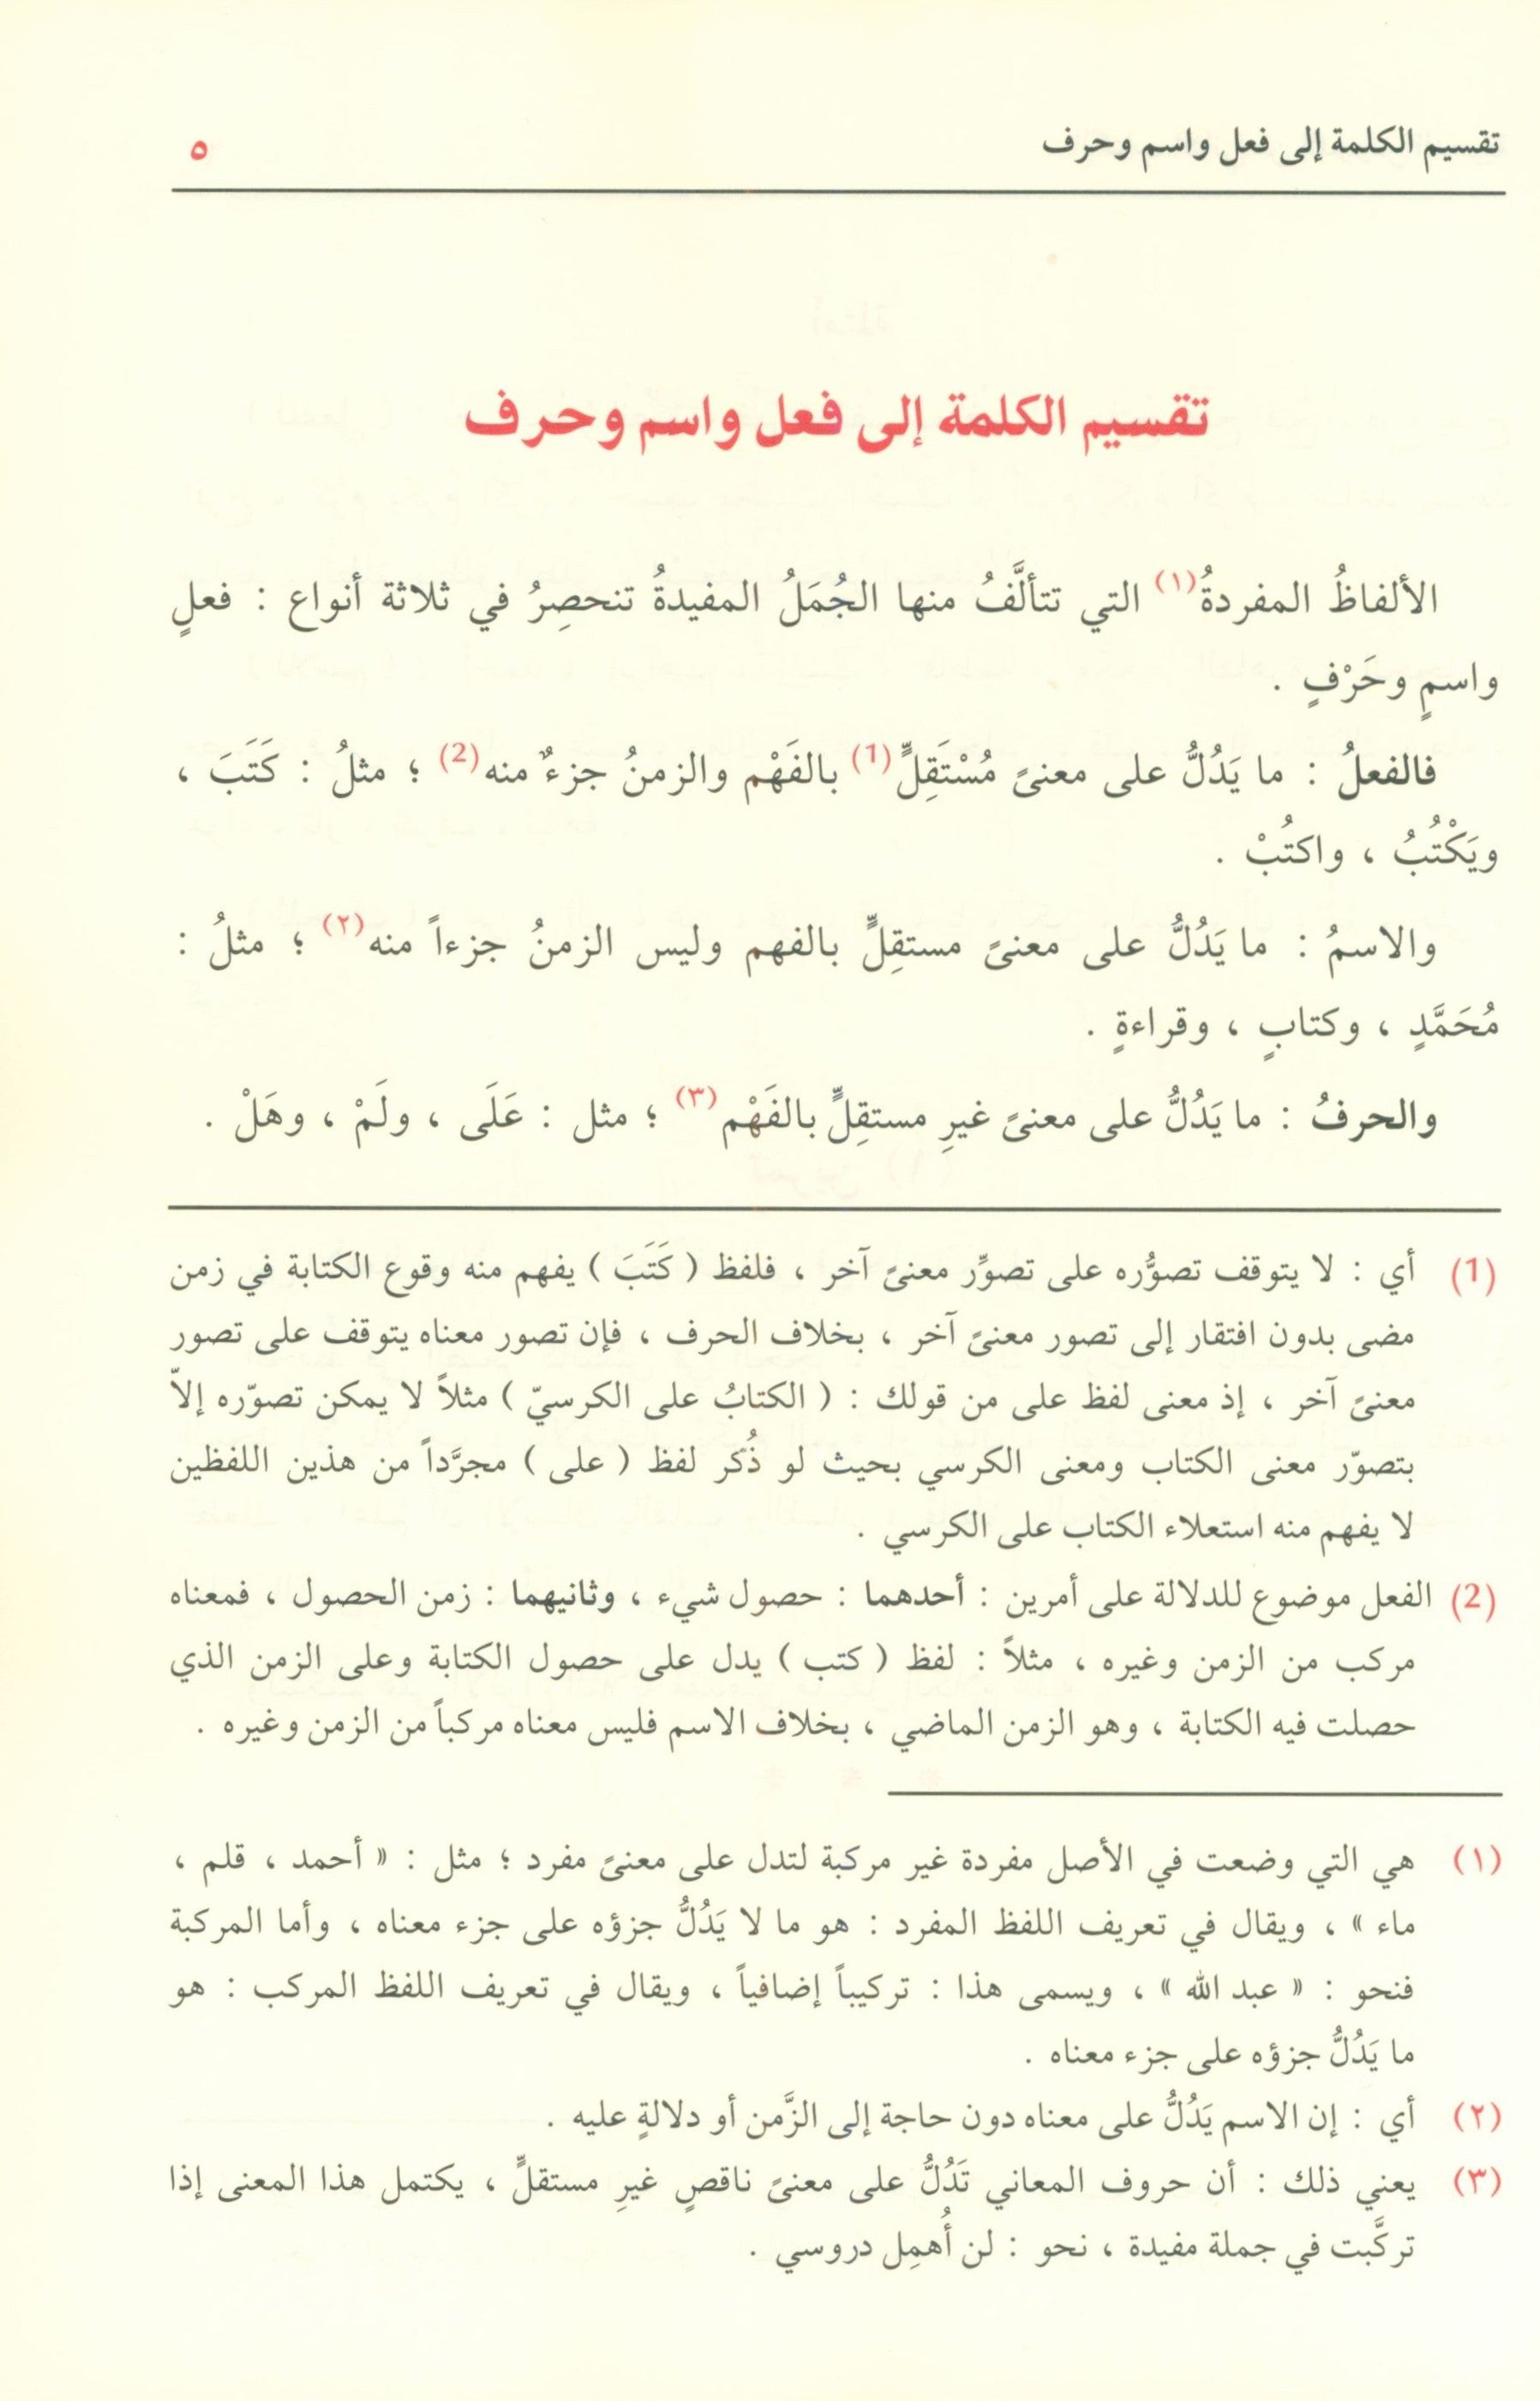 تقسيم الكلمة إلى فعل واسم وحرف ٥
تقسيم الكلمة إلى فعل واسم وحرف
الألفاظُ المفردةُ(١) التي تتألَّفُ منها الجُمَلُ المفيدةُ تنحصِرُ في ثلاثة أنواع : فعلٍ
واسمٍ وحَرْفٍ .
فالفعلُ : ما يَدُلُّ على معنىً مُسْتَقِلٍّ(1) بالفَهْم والزمنُ جزءٌ منه(2) ؛ مثلُ : كَتَبَ ،
ويَكْتُبُ ، واكتُبْ .
والاسمُ : ما يَدُلُّ على معنىً مستقِلٍّ بالفهم وليس الزمنُ جزءاً منه(٢) ؛ مثلُ :
مُحَمَّدٍ ، وكتابٍ ، وقراءةٍ .
والحرفُ : ما يَدُلُّ على معنىً غيرِ مستقِلٍّ بالفَهْم(٣) ؛ مثل : عَلَى ، ولَمْ ، وهَلْ .
(1) أي : لا يتوقف تصوُّره على تصوِّر معنىً آخر ، فلفظ ( كَتَبَ ) يفهم منه وقوع الكتابة في زمن
مضى بدون افتقار إلى تصور معنىً آخر ، بخلاف الحرف ، فإن تصور معناه يتوقف على تصور
معنىً آخر ، إذ معنى لفظ على من قولك : ( الكتابُ على الكرسيّ ) مثلاً لا يمكن تصوّره إلاّ
بتصوّر معنى الكتاب ومعنى الكرسي بحيث لو ذُكر لفظ ( على ) مجرَّداً من هذين اللفظين
لا يفهم منه استعلاء الكتاب على الكرسي .
(2) الفعل موضوع للدلالة على أمرين : أحدهما : حصول شيء ، وثانيهما : زمن الحصول ، فمعناه
مركب من الزمن وغيره ، مثلاً : لفظ ( كتب ) يدل على حصول الكتابة وعلى الزمن الذي
حصلت فيه الكتابة ، وهو الزمن الماضي ، بخلاف الاسم فليس معناه مركباً من الزمن وغيره .
(١) هي التي وضعت في الأصل مفردة غير مركبة لتدل على معنىً مفرد ؛ مثل : « أحمد ، قلم ،
ماء » ، ويقال في تعريف اللفظ المفرد : هو ما لا يَدُلُّ جزؤه على جزء معناه ، وأما المركبة
فنحو : « عبد الله » ، ويسمى هذا : تركيباً إضافياً ، ويقال في تعريف اللفظ المركب : هو
ما يَدُلُّ جزؤه على جزء معناه .
(٢) أي : إن الاسم يَدُلُّ على معناه دون حاجة إلى الزَّمن أو دلالةٍ عليه .
(٣) يعني ذلك : أن حروف المعاني تَدُلُّ على معنىً ناقصٍ غيرِ مستقلٍّ ، يكتمل هذا المعنى إذا
تركَّبت في جملة مفيدة ، نحو : لن أُهمِل دروسي .